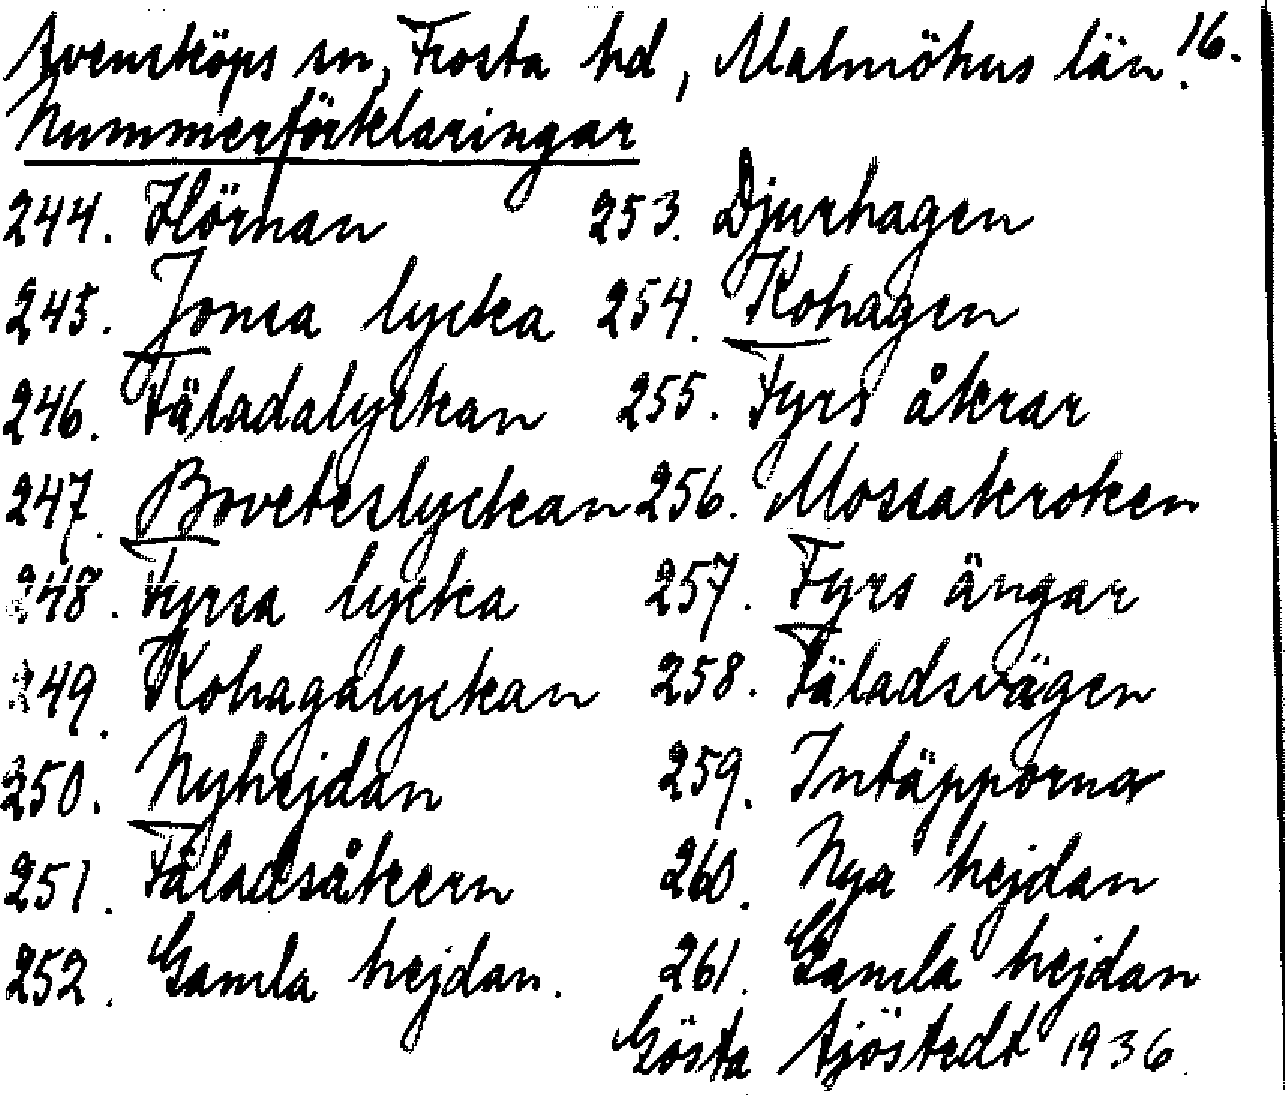 Svensköps sn, Frosta hd, Malmöhus län. 16.
Nummerförklaringar
244. Hörnan
245. Jonsa lycka
246. Fäladalyckan
247. Boveteslyckan
248. Fyrsa lycka
249. Kohagalyckan
250. Nyhejdan
251. Fäladsåkern
252. Gamla hejdan.
253. Djurhagen
254. Kohagen
255. Fyrs åkrar
256. Mossakroken
257. Fyrs ängar
258. Fäladsvägen
259. Intäpporna
260. Nya hejdan
261. Gamla hejdan
Gösta Sjöstedt 1936.